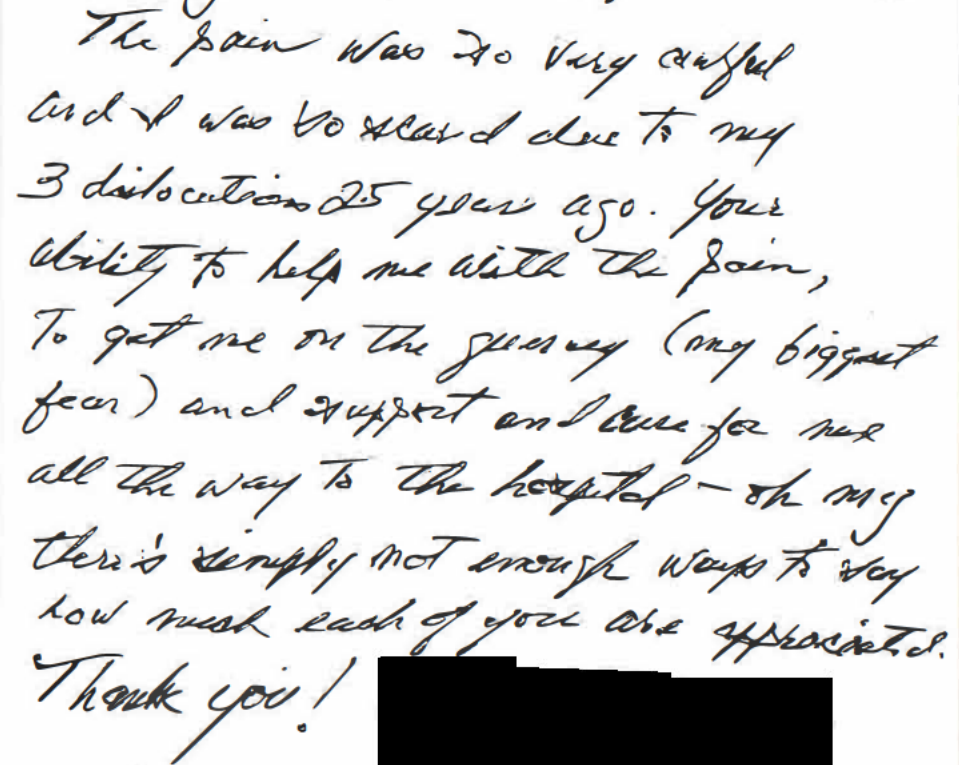 The pain was so very awful
and I was so scared due to my
3 dislocations 25 years ago. Your
ability to help me with the pain,
To get me on the gurney (my biggest
fear) and support and care for me
all the way to the hospital – oh my
there's simply not enough ways to say
how much each of you are appreciated.
Thank you!